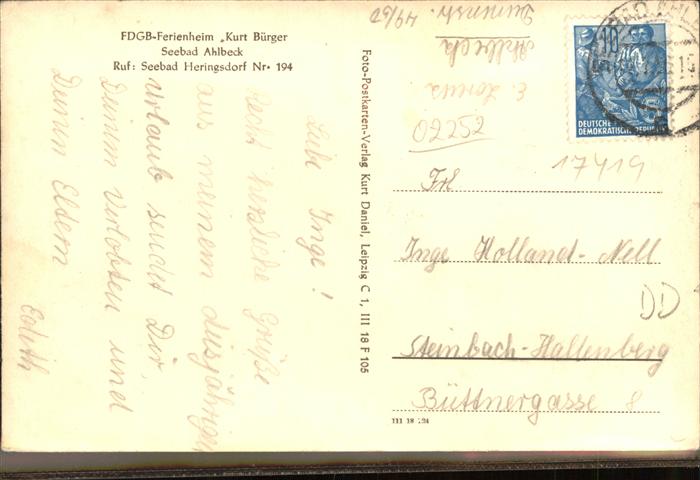 FDGB-Ferienheim „Kurt Bürger
Seebad Ahlbeck
Ruf: Seebad Heringsdorf Nr. 194
Liebe Inge!
Recht herzliche Grüße
aus meinem diesjährigen
Urlaub sendet Dir,
Deinem Verlobten und
Deinen Eltern
Edith
Foto-Postkarten-Verlag Kurt Daniel, Leipzig C 1, III 18 F 105
Ahlbeck
02252
17419
10
DEUTSCHE
DEMOKRATISCHE REPUBLIK
Frl
Inge Holland-Nell
DD
Steinbach-Hallenberg
Büttnergasse 8
III 18 124